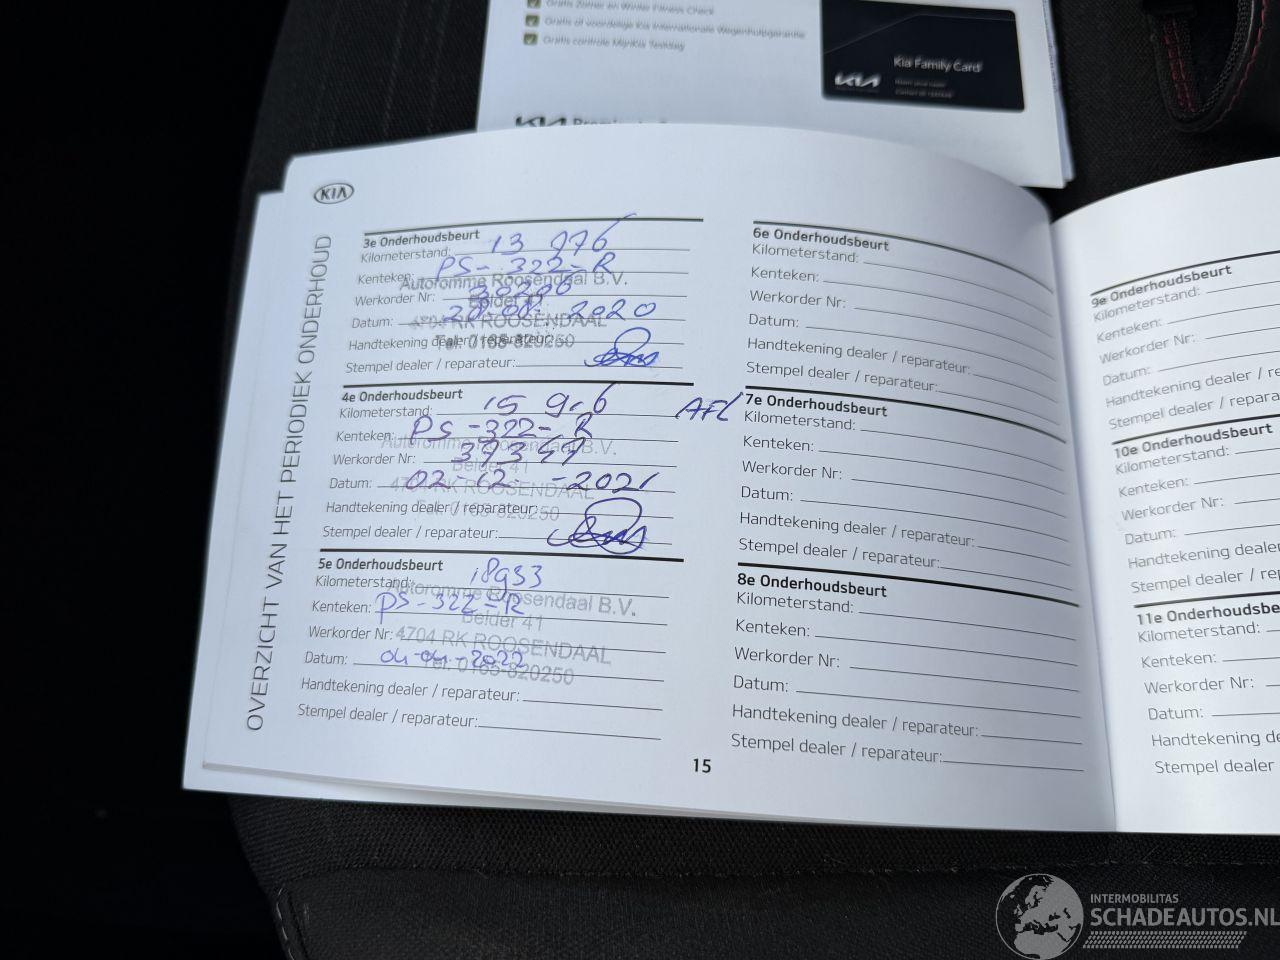 Gratis Zomer en Winter Fitness Check
Gratis of voordelige Kia Internationale Wegenhulpgarantie
Gratis controle MijnKia Testdag
Kia Family Card
KIA
KIA
KIA
OVERZICHT VAN HET PERIODIEK ONDERHOUD
3e Onderhoudsbeurt
Kilometerstand: 13
Kenteken: PS-322-R
Autoromme Roosendaal B.V.
Werkorder Nr:
Belder 41
Datum: 2020
4704 RK ROOSENDAAL
Handtekening dealer / reparateur:
Tel. 0165-820250
Stempel dealer / reparateur:
4e Onderhoudsbeurt
Kilometerstand: 15 AFL
Kenteken: PS-322-R
Autoromme Roosendaal B.V.
Werkorder Nr:
Belder 41
Datum: 02-12-2021
4704 RK ROOSENDAAL
Handtekening dealer / reparateur:
Tel. 0165-820250
Stempel dealer / reparateur:
5e Onderhoudsbeurt
Kilometerstand: 18933
Autoromme Roosendaal B.V.
Kenteken: PS-322-R
Belder 41
Werkorder Nr:
4704 RK ROOSENDAAL
Datum: 04-04-2022
Tel. 0165-820250
Handtekening dealer / reparateur:
Stempel dealer / reparateur:
6e Onderhoudsbeurt
Kilometerstand:
Kenteken:
Werkorder Nr:
Datum:
Handtekening dealer / reparateur:
Stempel dealer / reparateur:
7e Onderhoudsbeurt
Kilometerstand:
Kenteken:
Werkorder Nr:
Datum:
Handtekening dealer / reparateur:
Stempel dealer / reparateur:
8e Onderhoudsbeurt
Kilometerstand:
Kenteken:
Werkorder Nr:
Datum:
Handtekening dealer / reparateur:
Stempel dealer / reparateur:
15
9e Onderhoudsbeurt
Kilometerstand:
Kenteken:
Werkorder Nr:
Datum:
Handtekening dealer / re
Stempel dealer / repara
10e Onderhoudsbeurt
Kilometerstand:
Kenteken:
Werkorder Nr:
Datum:
Handtekening dealer
Stempel dealer / repa
11e Onderhoudsbeu
Kilometerstand:
Kenteken:
Werkorder Nr:
Datum:
Handtekening de
Stempel dealer
INTERMOBILITAS
SCHADEAUTOS.NL